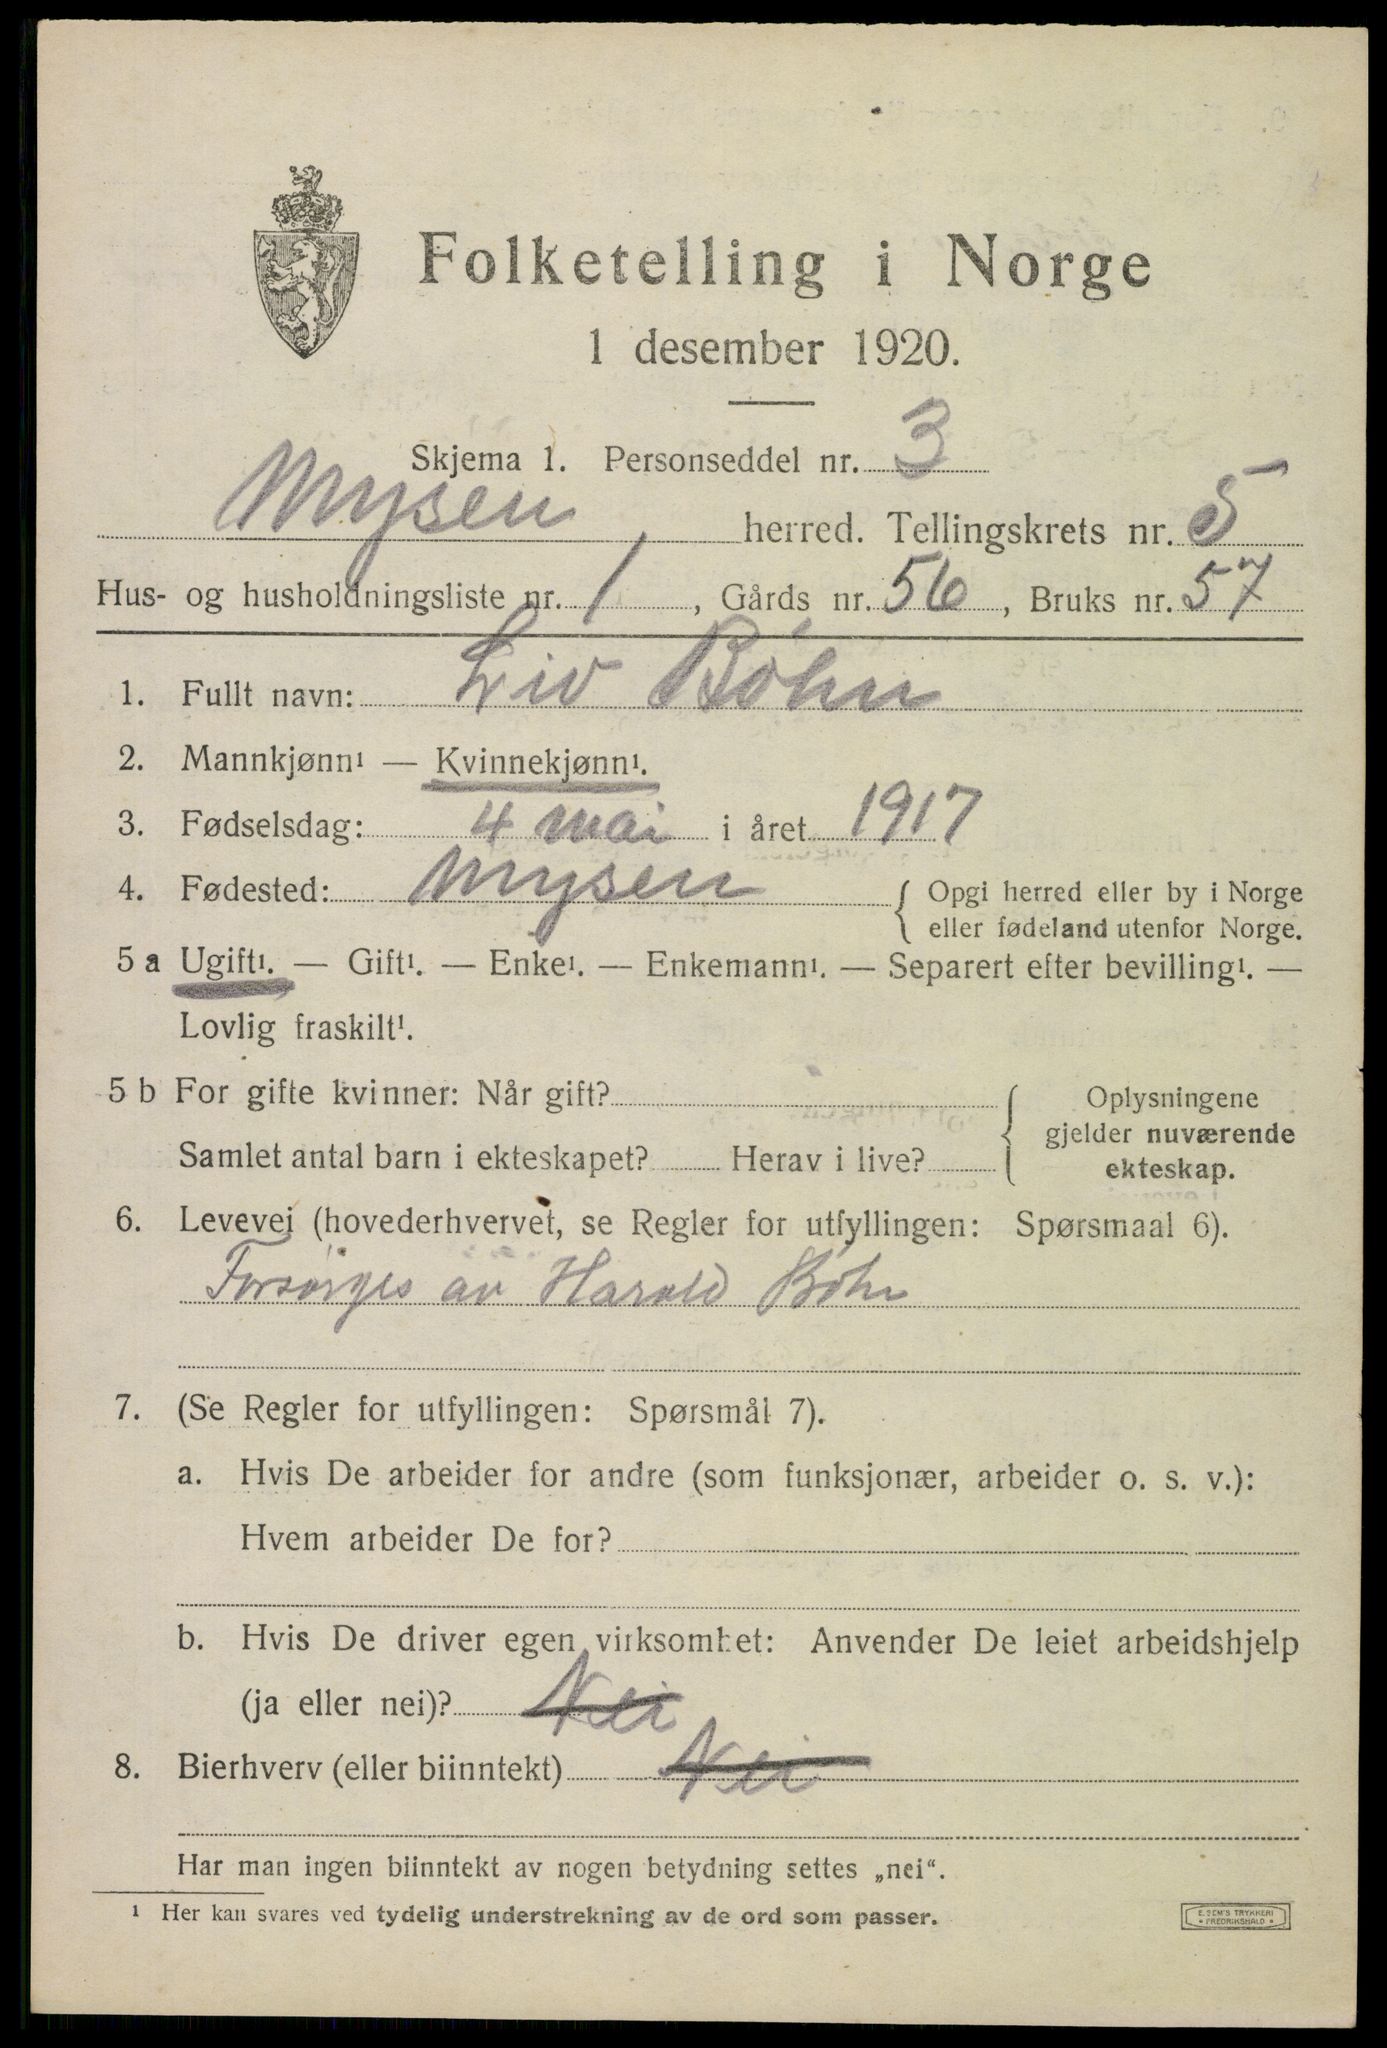 Folketelling i Norge
1 desember 1920.
Skjema 1. Personseddel nr. 3
Mysen herred. Tellingskrets nr. 5
Hus- og husholdningsliste nr. 1, Gårds nr. 56, Bruks nr. 57
1. Fullt navn: Liv Bøhn
2. Mannkjønn¹ — Kvinnekjønn¹.
3. Fødselsdag: 4 mai i året 1917
4. Fødested: Mysen { Opgi herred eller by i Norge
eller fødeland utenfor Norge.
5 a Ugift¹. — Gift¹. — Enke¹. — Enkemann¹. — Separert efter bevilling¹. —
Lovlig fraskilt¹.
5 b For gifte kvinner: Når gift?
Samlet antal barn i ekteskapet? Herav i live?
{ Oplysningene
gjelder nuværende
ekteskap.
6. Levevei (hovederhvervet, se Regler for utfyllingen: Spørsmaal 6).
Forsørges av Harald Bøhn
7. (Se Regler for utfyllingen: Spørsmål 7).
a. Hvis De arbeider for andre (som funksjonær, arbeider o. s. v.):
Hvem arbeider De for?
b. Hvis De driver egen virksomhet: Anvender De leiet arbeidshjelp
(ja eller nei)? Nei
8. Bierhverv (eller biinntekt) Nei
Har man ingen biinntekt av nogen betydning settes „nei“.
¹ Her kan svares ved tydelig understrekning av de ord som passer.
E. SEM'S TRYKKERI
FREDRIKSHALD